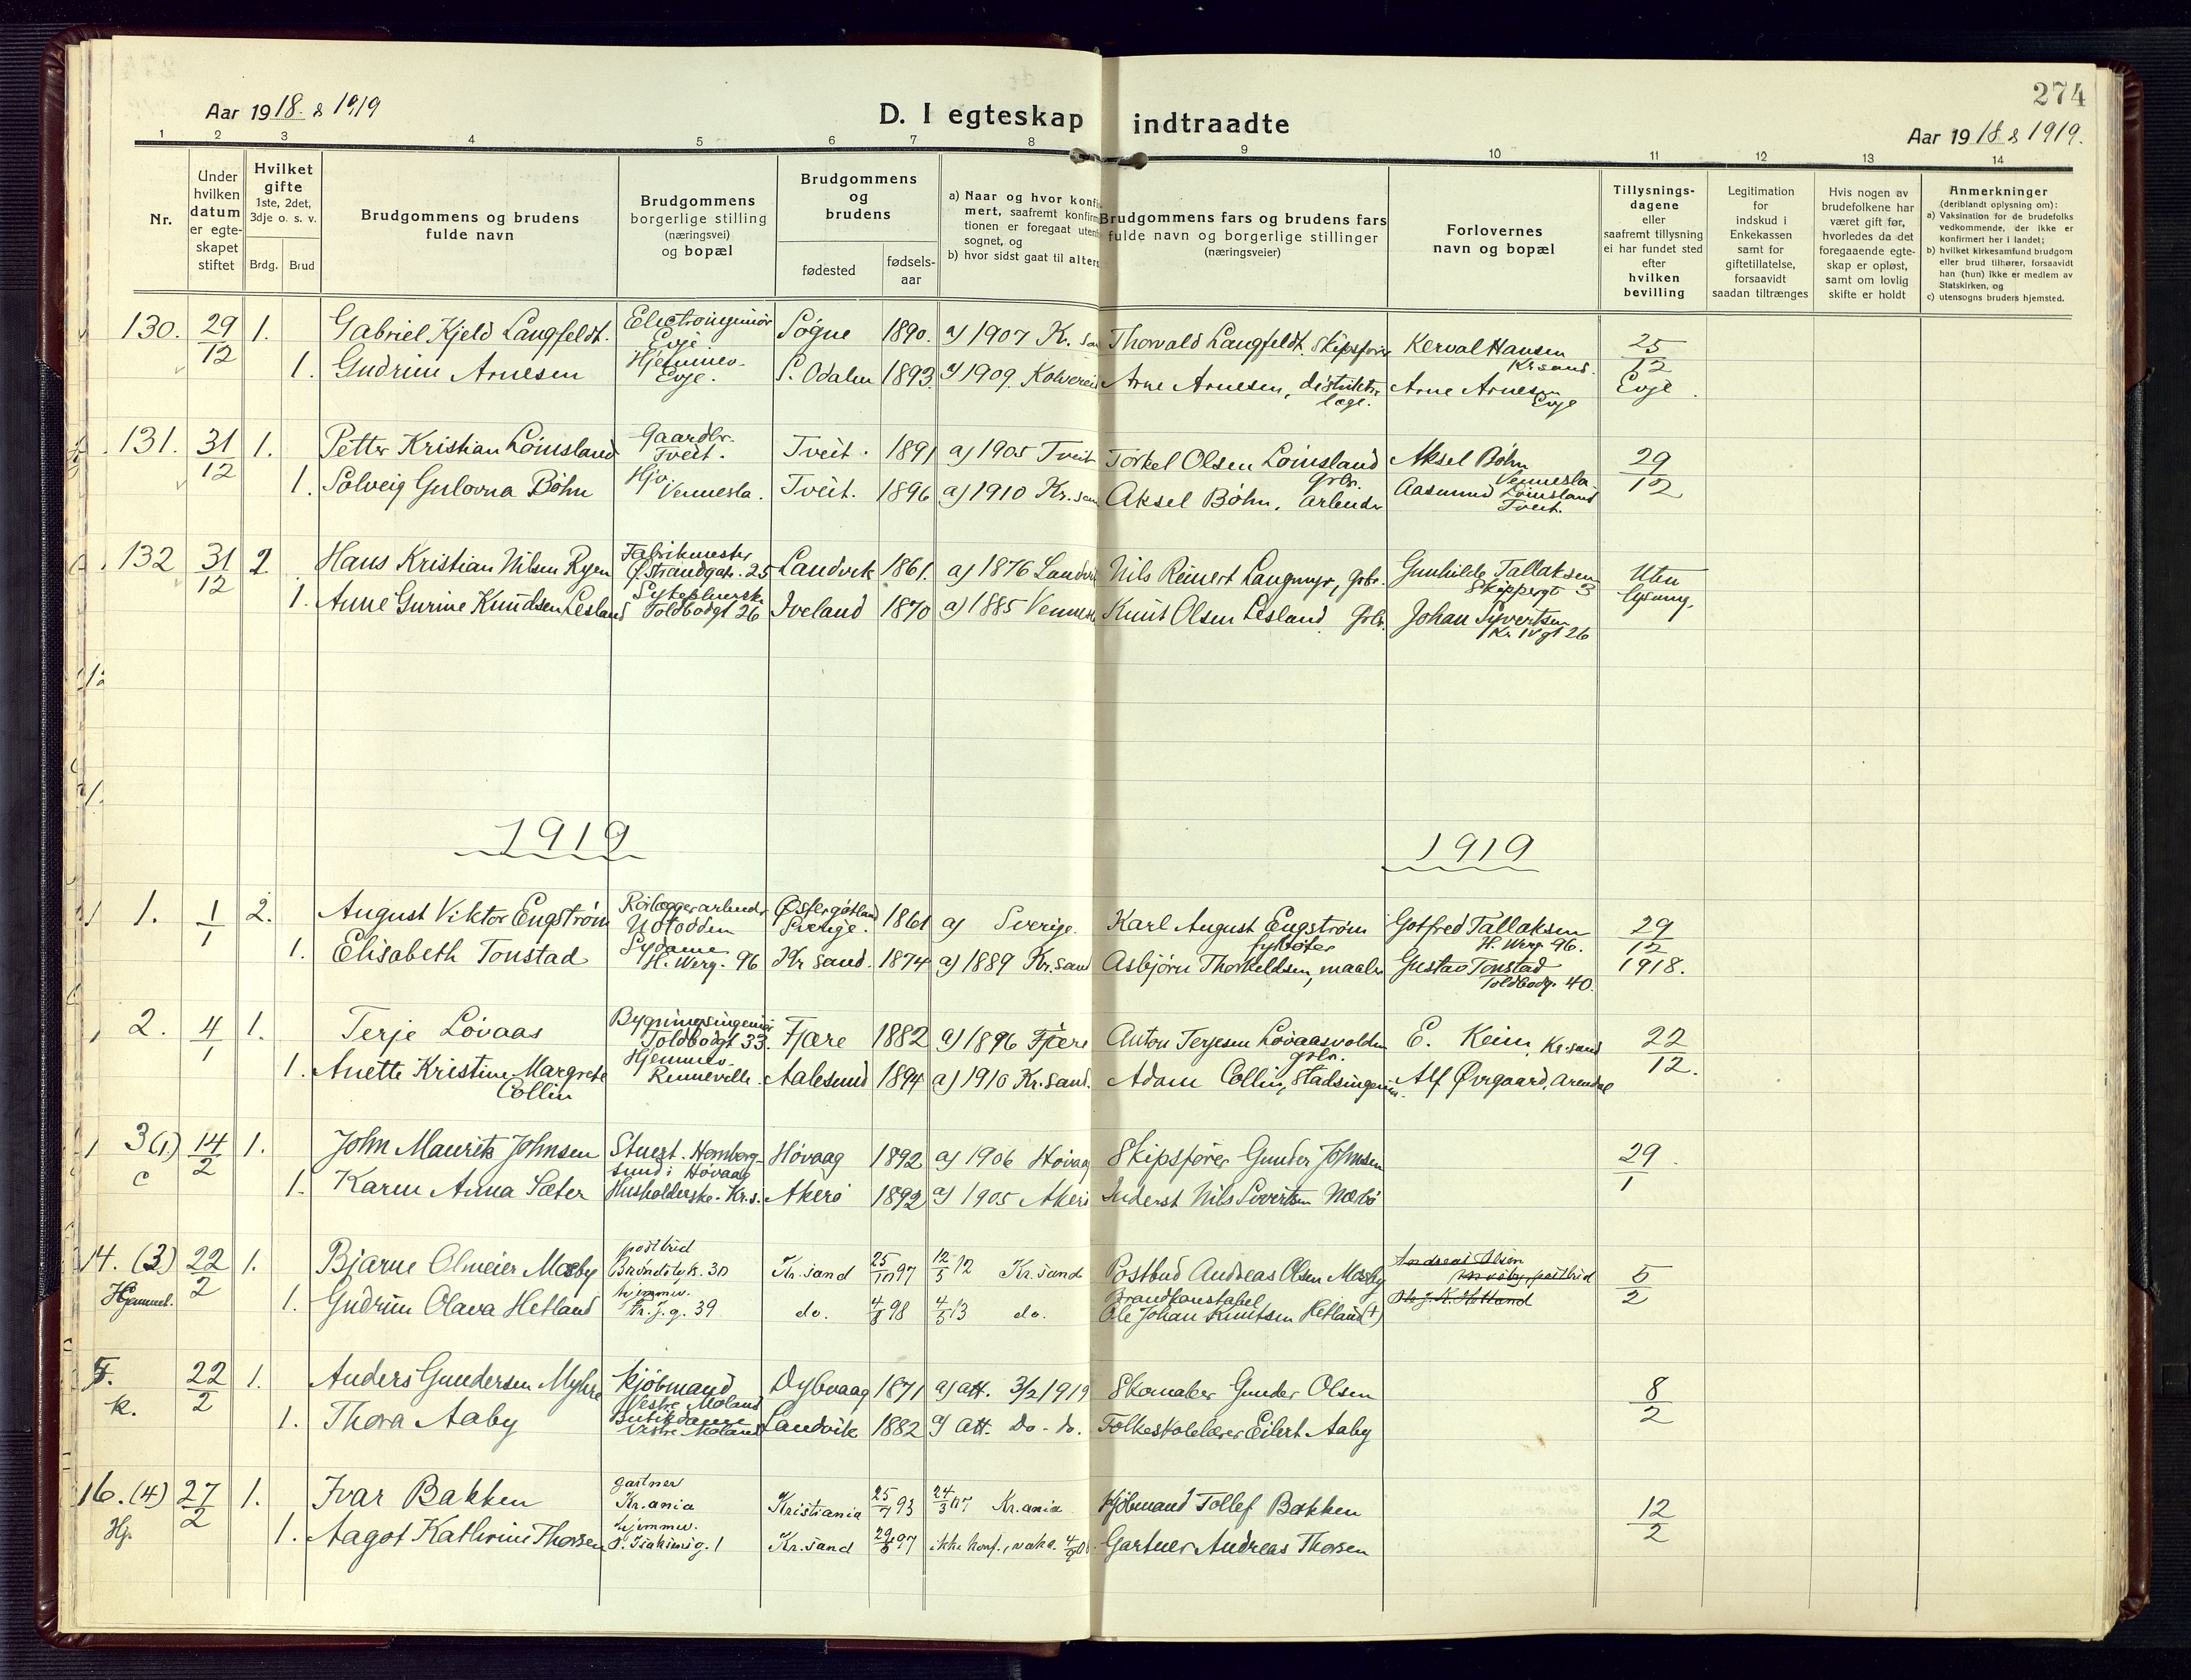 274
Aar 1918 & 1919
D. I egteskap indtraadte
Aar 1918 & 1919.
1 2 3 4 5 6 7 8 9 10 11 12 13 14
Nr.
Under hvilken datum er egteskapet stiftet
Hvilket gifte 1ste, 2det, 3dje o. s. v.
Brdg. Brud
Brudgommens og brudens fulde navn
Brudgommens borgerlige stilling (næringsvei) og bopæl
Brudgommens og brudens
fødested
fødselsaar
a) Naar og hvor konfirmert, saafremt konfirmationen er foregaat utenfor sognet, og
b) hvor sidst gaat til alters
Brudgommens fars og brudens fars fulde navn og borgerlige stillinger (næringsveier)
Forlovernes navn og bopæl
Tillysningsdagene eller saafremt tillysning ei har fundet sted efter hvilken bevilling
Legitimation for indskud i Enkekassen samt for giftetillatelse, forsaavidt saadan tiltrænges
Hvis nogen av brudefolkene har været gift før, hvorledes da det foregaaende egteskap er opløst, samt om lovlig skifte er holdt
Anmerkninger (deriblandt oplysning om):
a) Vaksination for de brudefolks vedkommende, der ikke er konfirmert her i landet;
b) hvilket kirkesamfund brudgom eller brud tilhører, forsaavidt han (hun) ikke er medlem av Statskirken, og
c) utensogns bruders hjemsted.
130. 29/12 1. Gabriel Kjeld Langfeldt. Electroingeniør Evje Søgne 1890. a) 1907 Kr. san Thorvald Langfeldt, Skipsfører Kerval Hansen Kr sand. 25/12 Evje
1. Gudrun Arnesen Hjemmev. Evje. S. Odalen 1893. a) 1909. Kolvereid Arne Arnesen, distriktslæge. Arne Arnesen Evje
131. 31/12 1. Petter Kristian Loinsland Gaardbr. Tveit. Tveit. 1891 a) 1905 Tveit Torkel Olsen Loinsland Grbr. Aksel Bøhn Vennesla 29/12
1. Solveig Gulovna Bøhn Hjv. Vennesla. Tveit. 1896 a) 1910 Kr. san Aksel Bøhn, arbeider Aasmund Loinsland Tveit.
132 31/12 2. Hans Kristian Nilsen Ryen Fabrikmester Ø. Strandgate. 25 Landvik 1861. a) 1876 Landvi Nils Reinert Langmyr, Grbr. Gunhilde Tallaksen Skippergt 3 Uten lysning.
1. Anne Gurine Knudsen Lesland Toldbodgt 26 Iveland 1870 a) 1885 Vennesl Knut Olsen Lesland Grbr. Johan Syvertsen Kr. IV gt 26
1919 1919
1. 1/1 2. August Viktor Engstrøm Rørlæggerarbeider Notodden Østergøtland Sverige. 1861 a) Sverige. Karl August Engstrøm Gotfred Tallaksen H. Werg. 96. 29/12 1918.
1. Elisabeth Tonstad Sydame H. Werg. 96 Kr sand. 1874 a) 1889 Kr. sand Asbjørn Thorkeldsen, maaler Gustav Tonstad Toldbodg. 40.
2. 4/1 1. Terje Løvaas Bygningsingeniør Toldbodgt 33. Fjære 1882 a) 1896 Fjære Anton Terjesen Løvaasvolden grbr. E. Keim, Kr. sand 22/12.
1. Anette Kristine Margrete Collin Hjemmev. Renneville. Aalesund 1894 a) 1910 Kr. sand. Adam Collin, Stadsingeniør. Alf Øvrgaard, Arendal
3 (1) c 14/2 1. John Maurits Johnsen Stuert. Homborgsund i Høvaag Høvaag 1892 a) 1906 Høvaag Skipsfører Gunder Johnsen 29/1
1. Karen Anna Sæter Husholderske. Kr. s. Akerø 1892 a) 1905 Akerø Inderst Nils Sivertsen Næbø
4. (3) Hjemmet. 22/2 1. Bjarne Olmeier Mosby postbud Brøndstyk. 30 Kr. sand 25/10 97 12/5 12 Kr. sand Postbud Andreas Olsen Mosby Andreas Olsen Mosby, postbud 5/2
1. Gudrun Olava Hetland hjemmev. Kr. J. g. 39 do. 4/8 98 4/5 13 do. Brandkonstabel Ole Johan Knutsen Hetland (+) Ole J. K. Hetland
5. k. 22/2 1. Anders Gundersen Myhre Kjøbmand Vestre Moland Dybvaag 1871 a) att. 3/2 1919 Skomaker Gunder Olsen 8/2
1. Thora Aaby Butikdame Vestre Moland Landvik 1882 a) att. Do - do. Folkeskolelærer Eilert Aaby
6. (4) Hj. 27/2 1. Ivar Bakken gartner Kr. ania Kristiania 25/4 93 24/3 07 Kr. ania Kjøbmand Tollef Bakken 12/2
1. Aagot Kathrine Thorsen hjemmev. Kr. sand 29/8 97 ikke konf., vaks. Gartner Andreas Thorsen